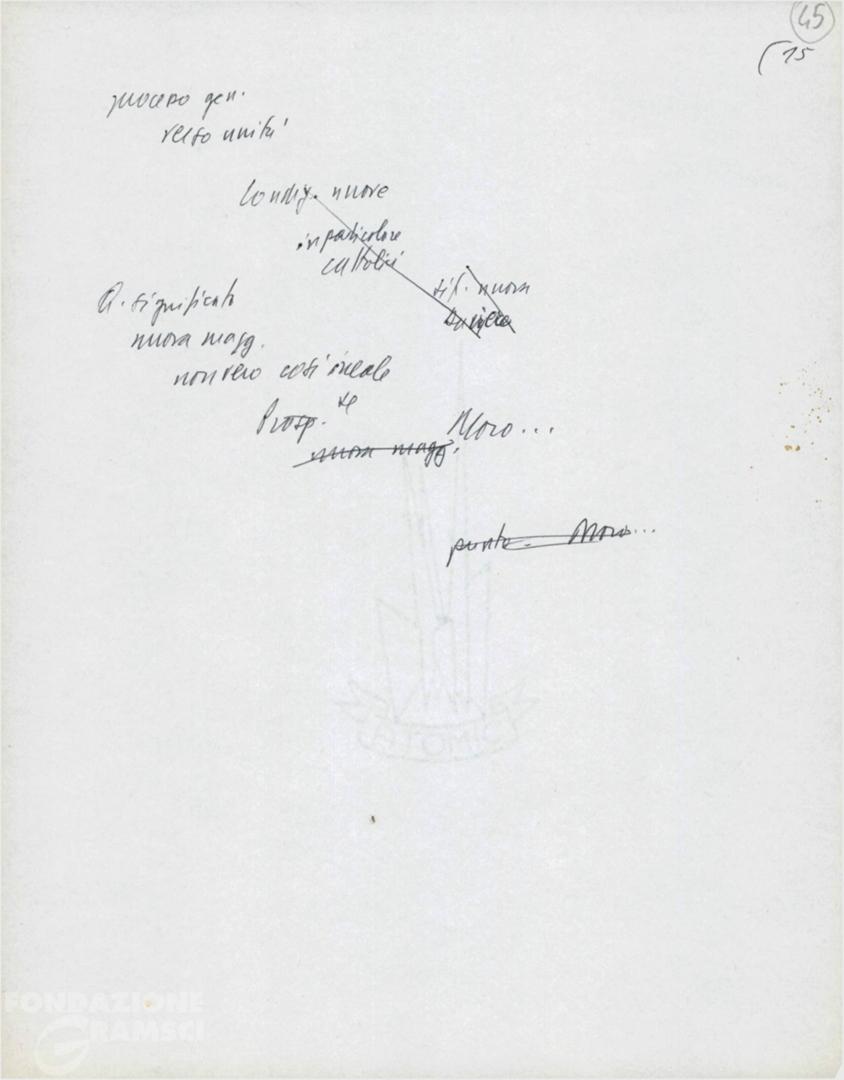 45
(15
processo gen.
verso unità
Condiz. nuove
in particolare
cattolici
sit. nuova
R. significato
nuova magg.
non vero così ineale
Prosp. se
Moro...
nuova magg.
punto. Moro...
ATOMIC
FONDAZIONE
GRAMSCI